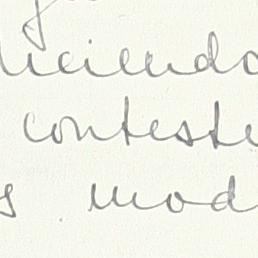 iciendo
conteste
s mod